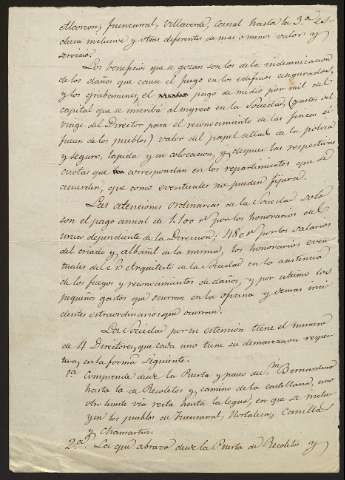 Alcorcon, Fuencarral, Villaverde, Canal hasta la 3.ª es-
clusa inclusive y otras diferentes de mas o menos valor y
servicio.
Los beneficios que se gozan son los de la indemnizacion
de los daños que cause el fuego en los edificios asegurados,
y los gravamenes, el pago de medio por mil del
capital que se inscriba al ingreso en la Sociedad, gastos del
viage del Director para el reconocimiento de las fincas si
fuesen de los pueblos, valor del papel sellado de la poliza
y seguro, tarjeta y su colocacion, y despues las respectivas
cuotas que correspondan en los repartimientos que se
acuerden, que como eventuales no pueden fijarse.
Las atenciones ordinarias de la Sociedad solo
son el pago anual de 1.100 r.s por los honorarios del
unico dependiente de la Direccion; 480 r.s por los salarios
del criado y albañil de la misma, los honorarios even-
tuales del Arquitecto de la Sociedad en la asistencia
de los fuegos y reconocimientos de daños, y por ultimo los
pequeños gastos que ocurren en la oficina y demas inci-
dentes extraordinarios que ocurran.
La Sociedad por su estension tiene el numero
de 4 Directores, que cada uno tiene su demarcacion respec-
tiva, en la forma siguiente.
1.ª Comprende desde la Puerta y paseo de S.n Bernardino
hasta la de Recoletos y camino de la castellana, cu-
yo limite via recta hasta la legua, en que se inclu-
yen los pueblos de Fuencarral, Hortaleza, Canillas
y Chamartin.
2.ª La que abraza desde la Puerta de Recoletos y